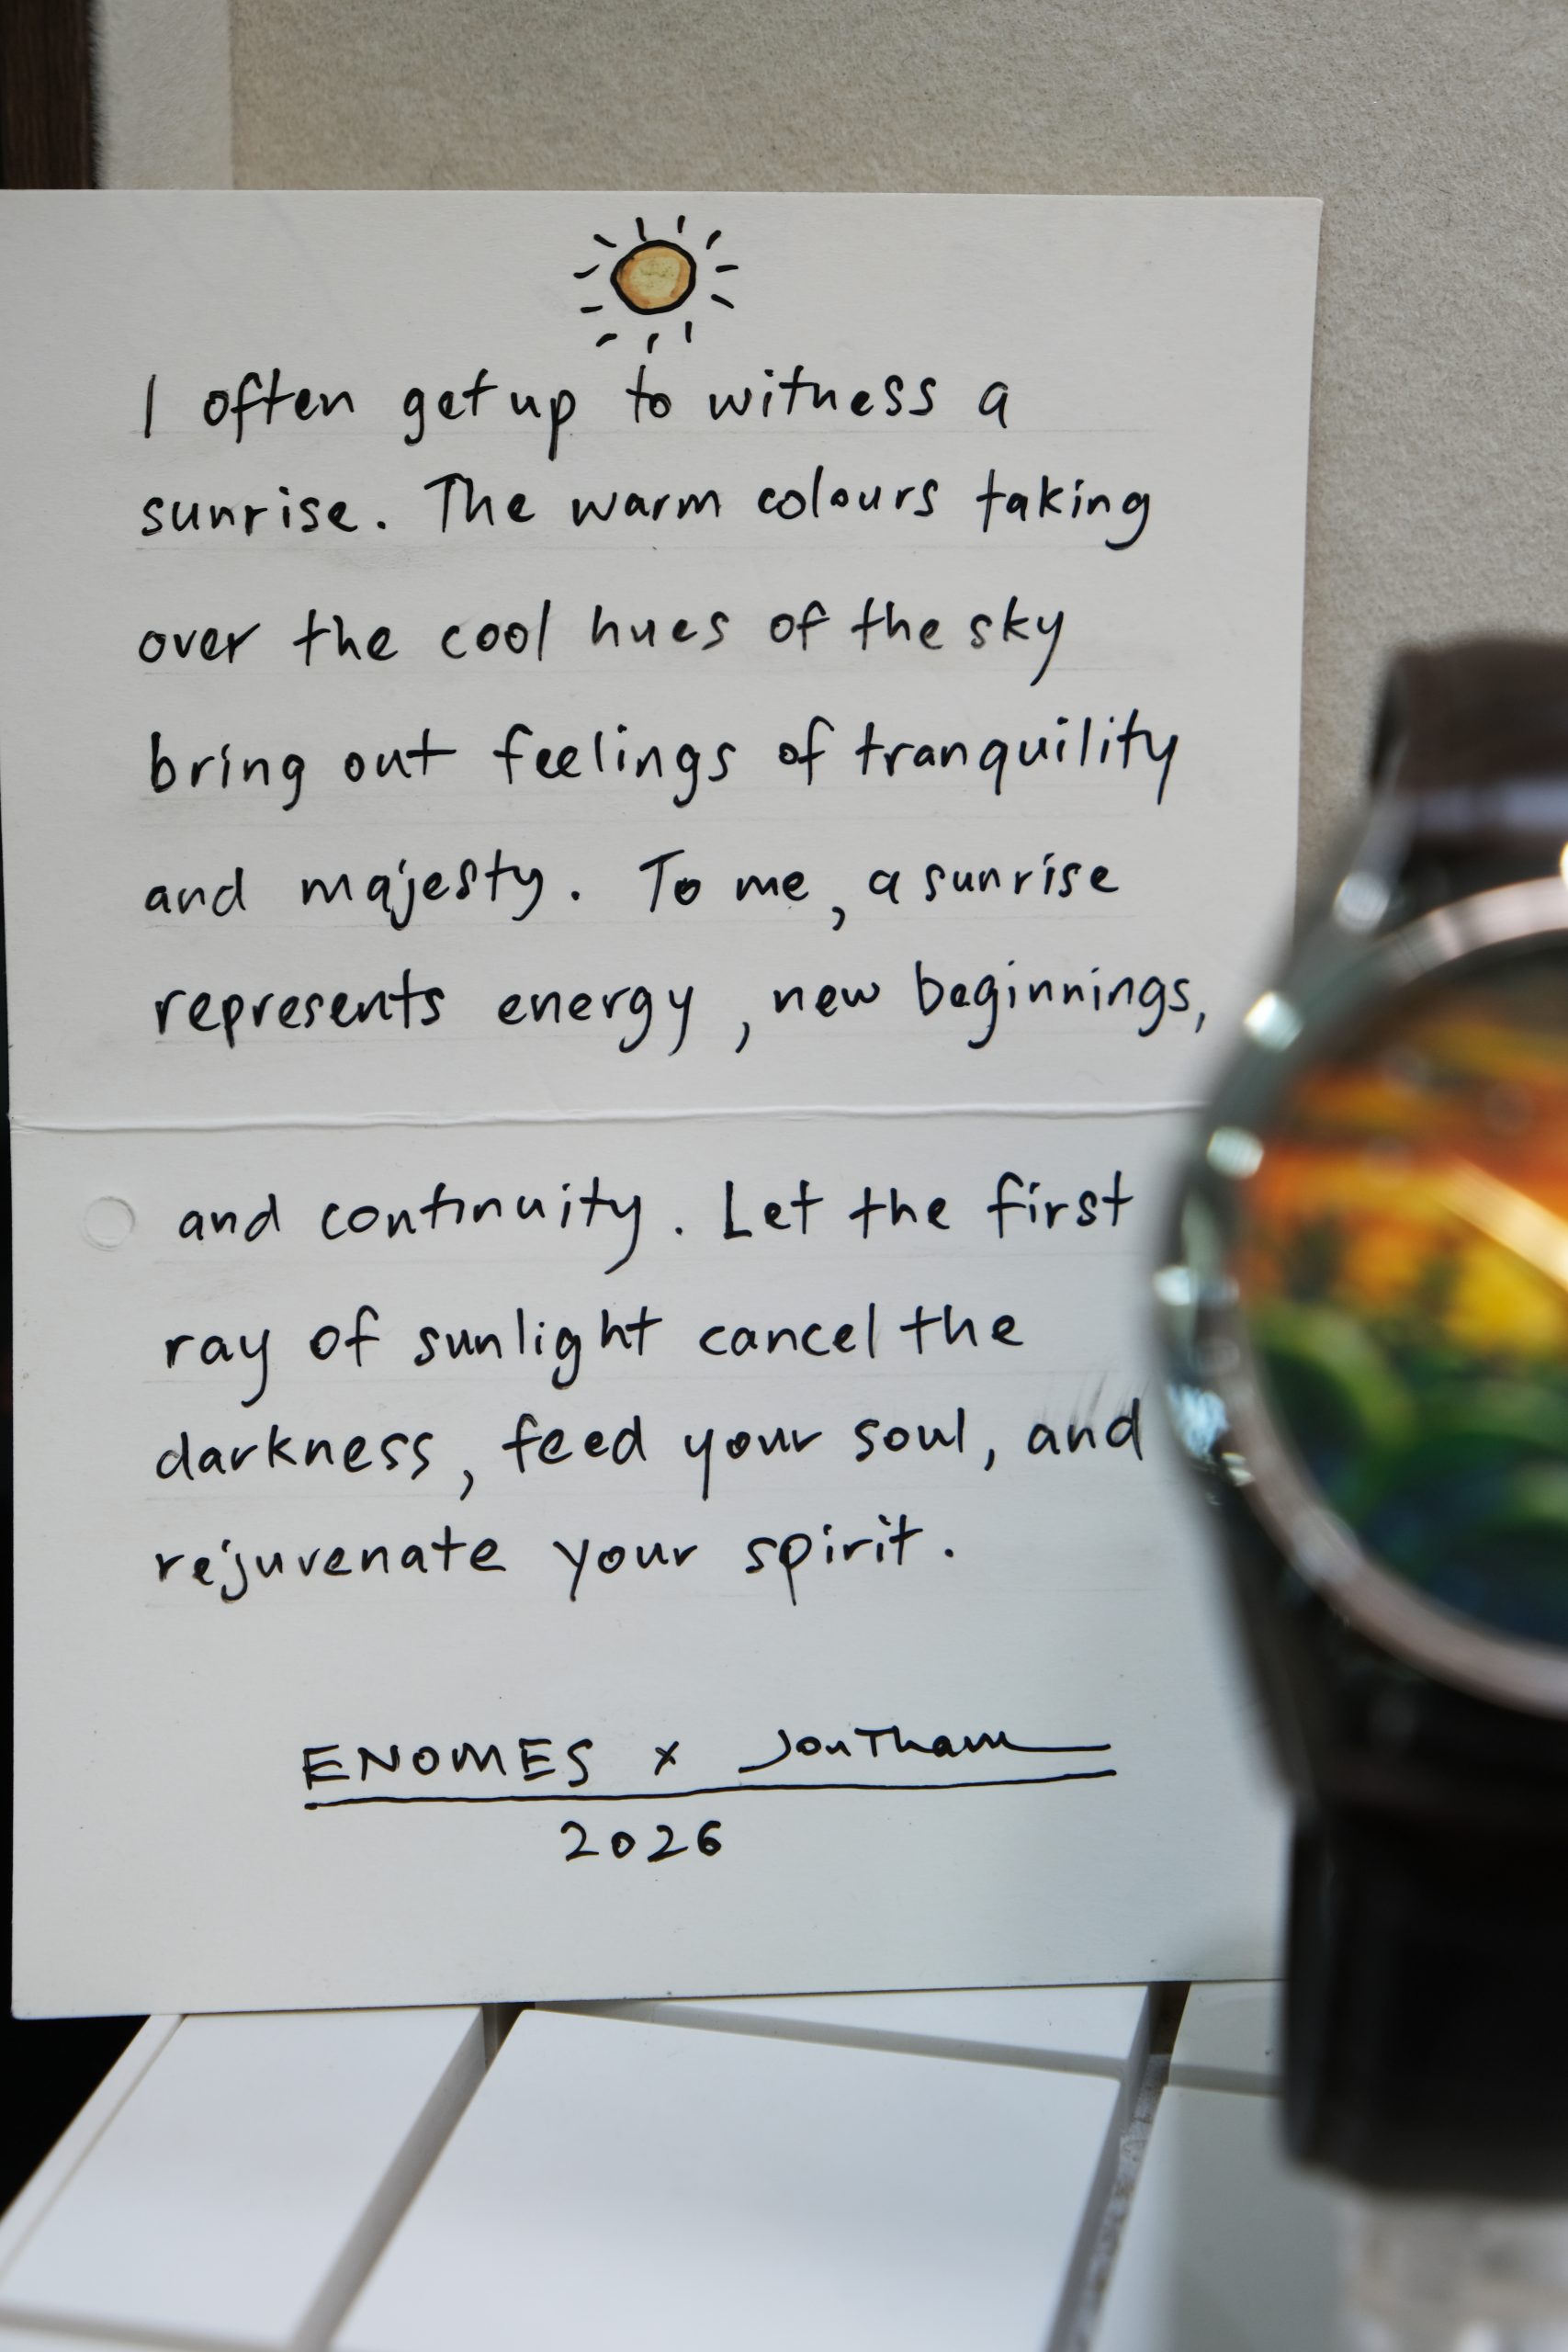 I often get up to witness a
sunrise. The warm colours taking
over the cool hues of the sky
bring out feelings of tranquility
and majesty. To me, a sunrise
represents energy, new beginnings,
and continuity. Let the first
ray of sunlight cancel the
darkness, feed your soul, and
rejuvenate your spirit.
ENOMES x JonTham
2026